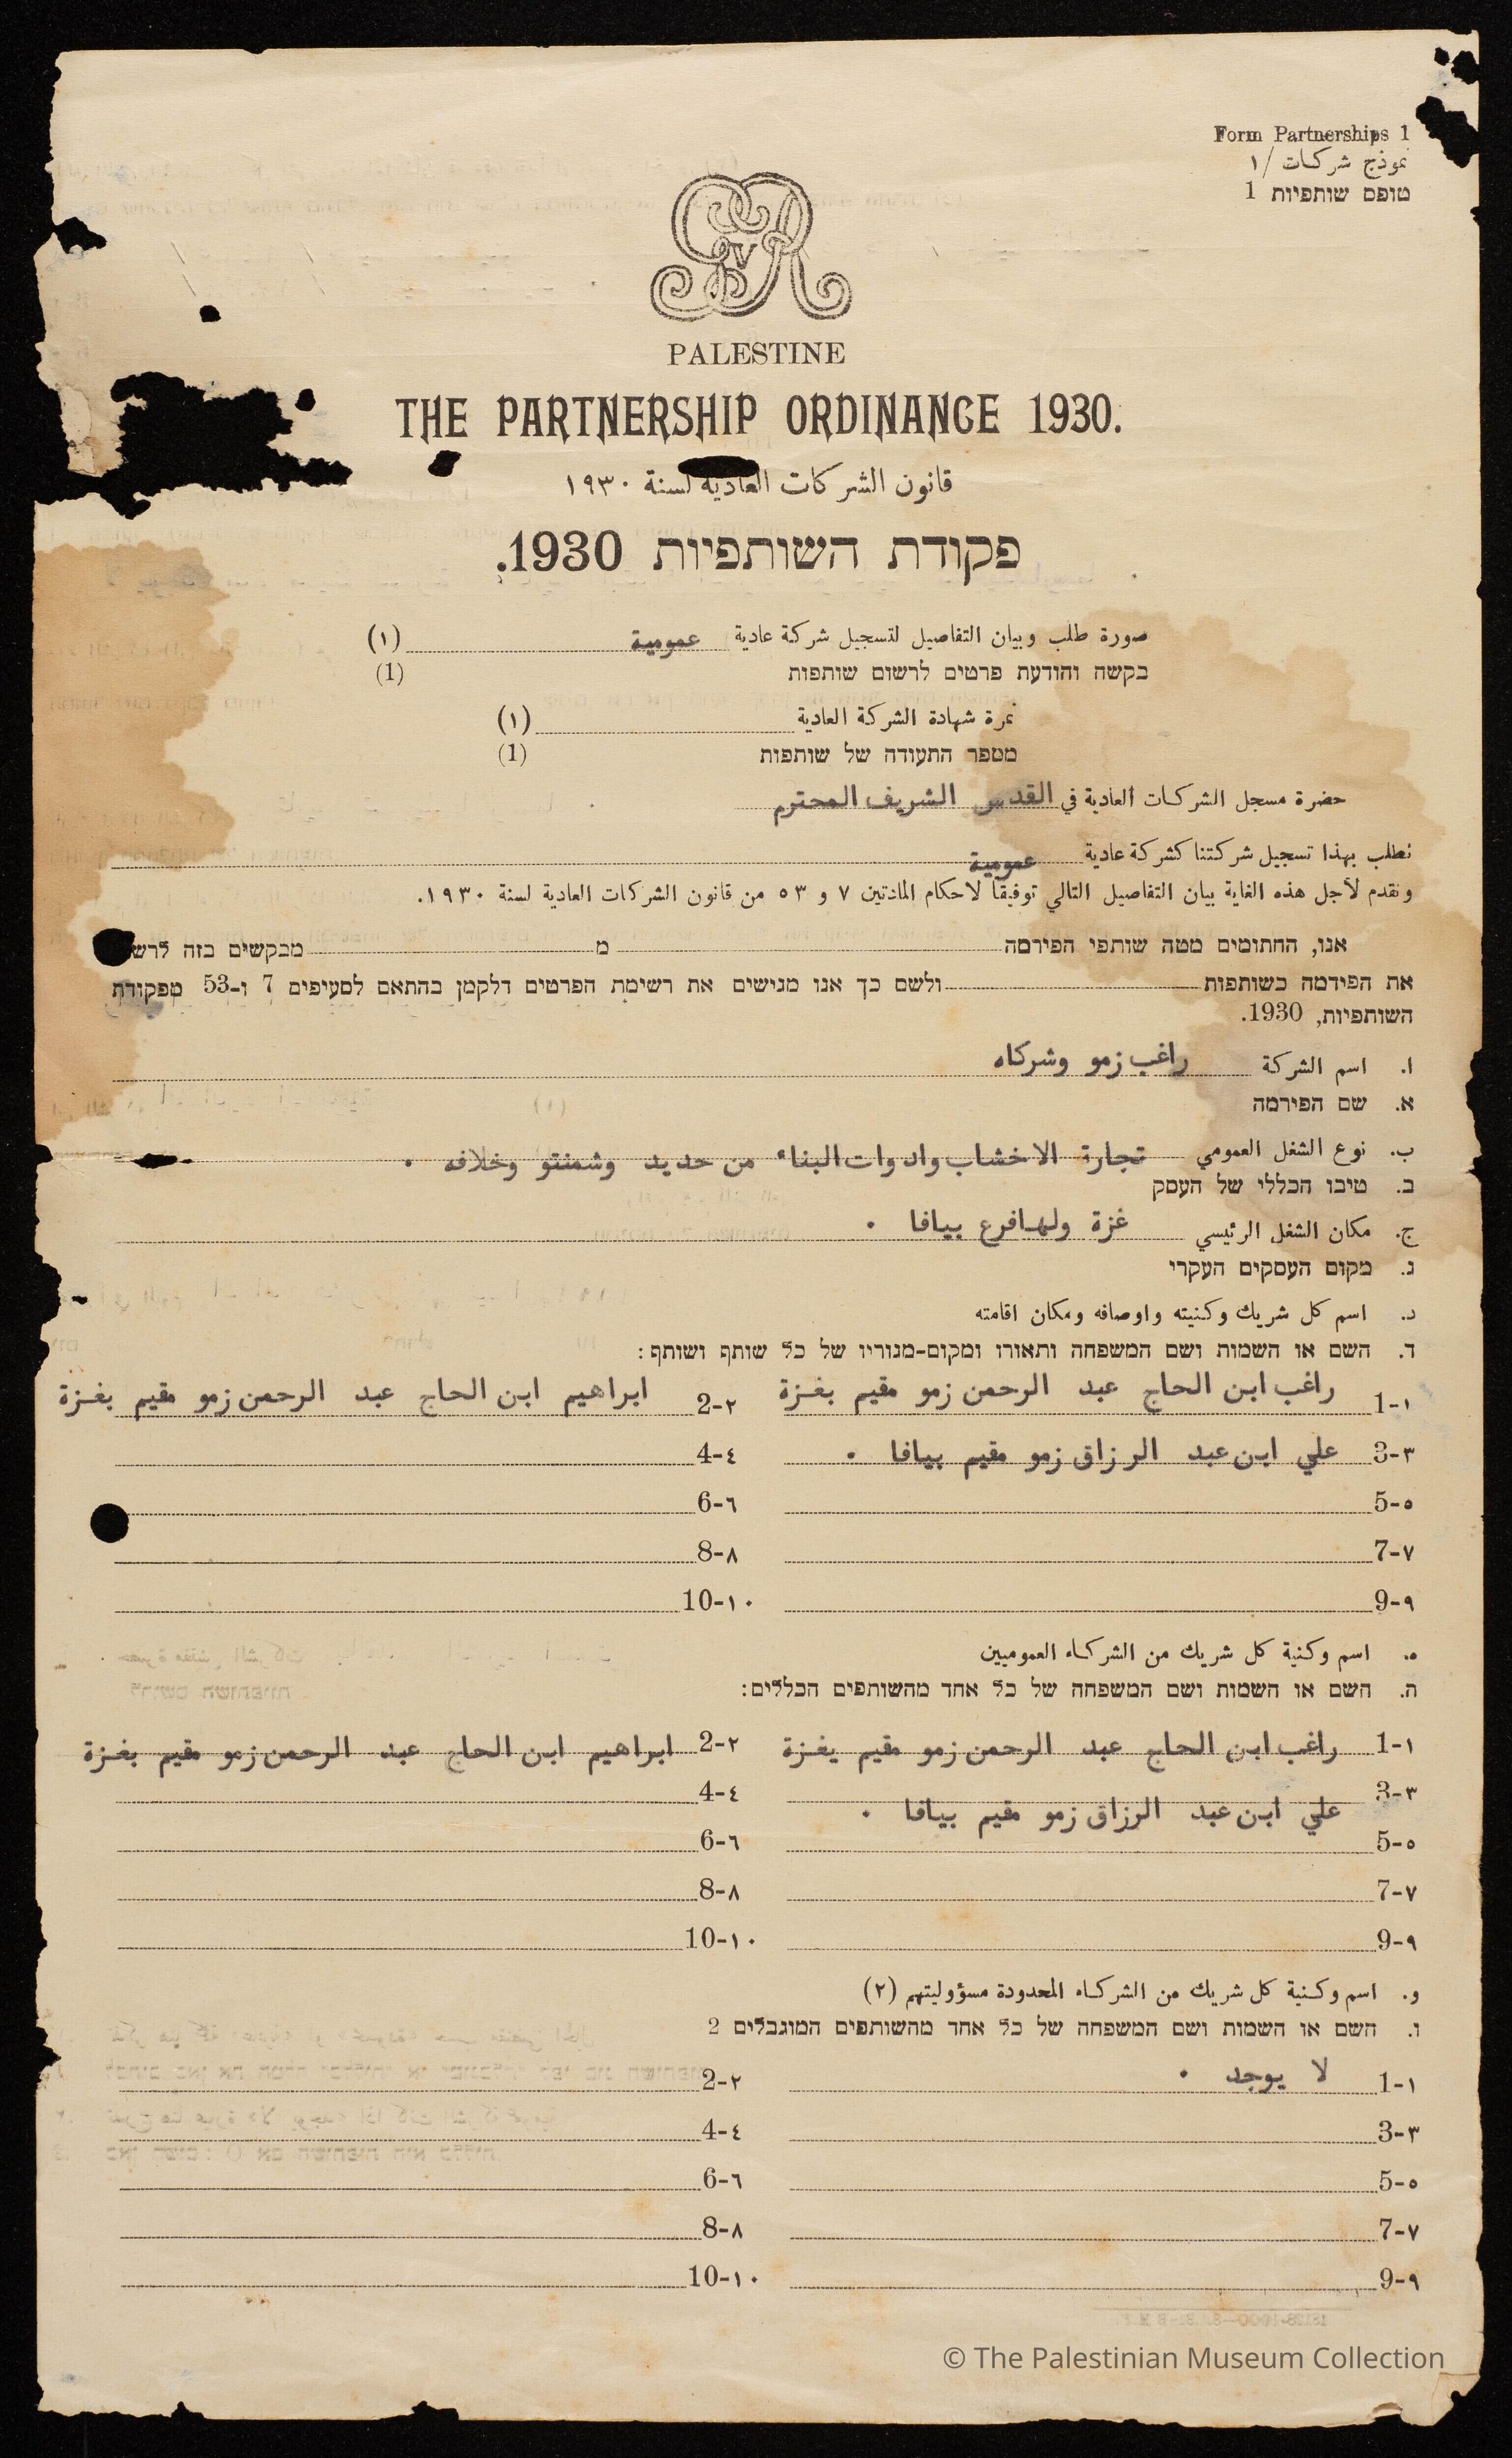 Form Partnerships 1
نموذج شركات /١
טופס שותפיות 1
GVR
PALESTINE
THE PARTNERSHIP ORDINANCE 1930.
قانون الشركات العادية لسنة ١٩٣٠
פקודת השותפיות 1930.
صورة طلب وبيان التفاصيل لتسجيل شركة عادية عمومية (١)
בקשה והודעת פרטים לרשום שותפות (1)
نمرة شهادة الشركة العادية (١)
מספר התעודה של שותפות (1)
حضرة مسجل الشركات العادية في القدس الشريف المحترم
نطلب بهذا تسجيل شركتنا كشركة عادية عمومية
ونقدم لأجل هذه الغاية بيان التفاصيل التالي توفيقاً لاحكام المادتين ٧ و ٥٣ من قانون الشركات العادية لسنة ١٩٣٠.
אנו, החתומים מטה שותפי הפירמה מ מבקשים בזה
את הפירמה כשותפות ולשם כך אנו מגישים את רשימת הפרטים דלקמן בהתאם לסעיפים 7 ו-53 מפקודת
השותפיות, 1930.
ا. اسم الشركة راغب زمو وشركاه
א. שם הפירמה
ب. نوع الشغل العمومي تجارة الاخشاب وادوات البناء من حديد وشمنتو وخلافه .
ב. טיבו הכללי של העסק
ج. مكان الشغل الرئيسي غزة ولها فرع بيافا .
ג. מקום העסקים העקרי
د. اسم كل شريك وكنيته واوصافه ومكان اقامته
ד. השם או השמות ושם המשפחה ותאורו ומקום-מגוריו של כל שותף ושותף:
1-١ راغب ابن الحاج عبد الرحمن زمو مقيم بغزة 2-٢ ابراهيم ابن الحاج عبد الرحمن زمو مقيم بغزة
3-٣ علي ابن عبد الرزاق زمو مقيم بيافا . 4-٤
5-٥ 6-٦
7-٧ 8-٨
9-٩ 10-١٠
ه. اسم وكنية كل شريك من الشركاء العموميين
ה. השם או השמות ושם המשפחה של כל אחד מהשותפים הכללים:
1-١ راغب ابن الحاج عبد الرحمن زمو مقيم يغزة 2-٢ ابراهيم ابن الحاج عبد الرحمن زمو مقيم بغزة
3-٣ علي ابن عبد الرزاق زمو مقيم بيافا . 4-٤
5-٥ 6-٦
7-٧ 8-٨
9-٩ 10-١٠
و. اسم وكنية كل شريك من الشركاء المحدودة مسؤوليتهم (٢)
ו. השם או השמות ושם המשפחה של כל אחד מהשותפים המוגבלים 2
1-١ لا يوجد . 2-٢
3-٣ 4-٤
5-٥ 6-٦
7-٧ 8-٨
9-٩ 10-١٠
© The Palestinian Museum Collection